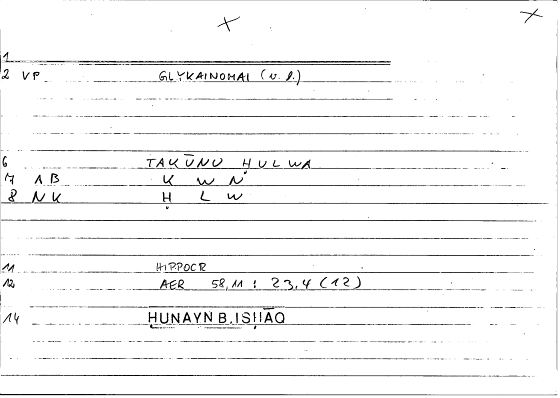 1
2 VP GLYKAINOMAI (v.l.)
6 TAKŪNU ḤULWA
7 1B K W N
8 NK Ḥ L W
11 HIPPOCR
12 AER 58,11 : 23,4 (12)
14 ḤUNAYN B. ISḤĀQ